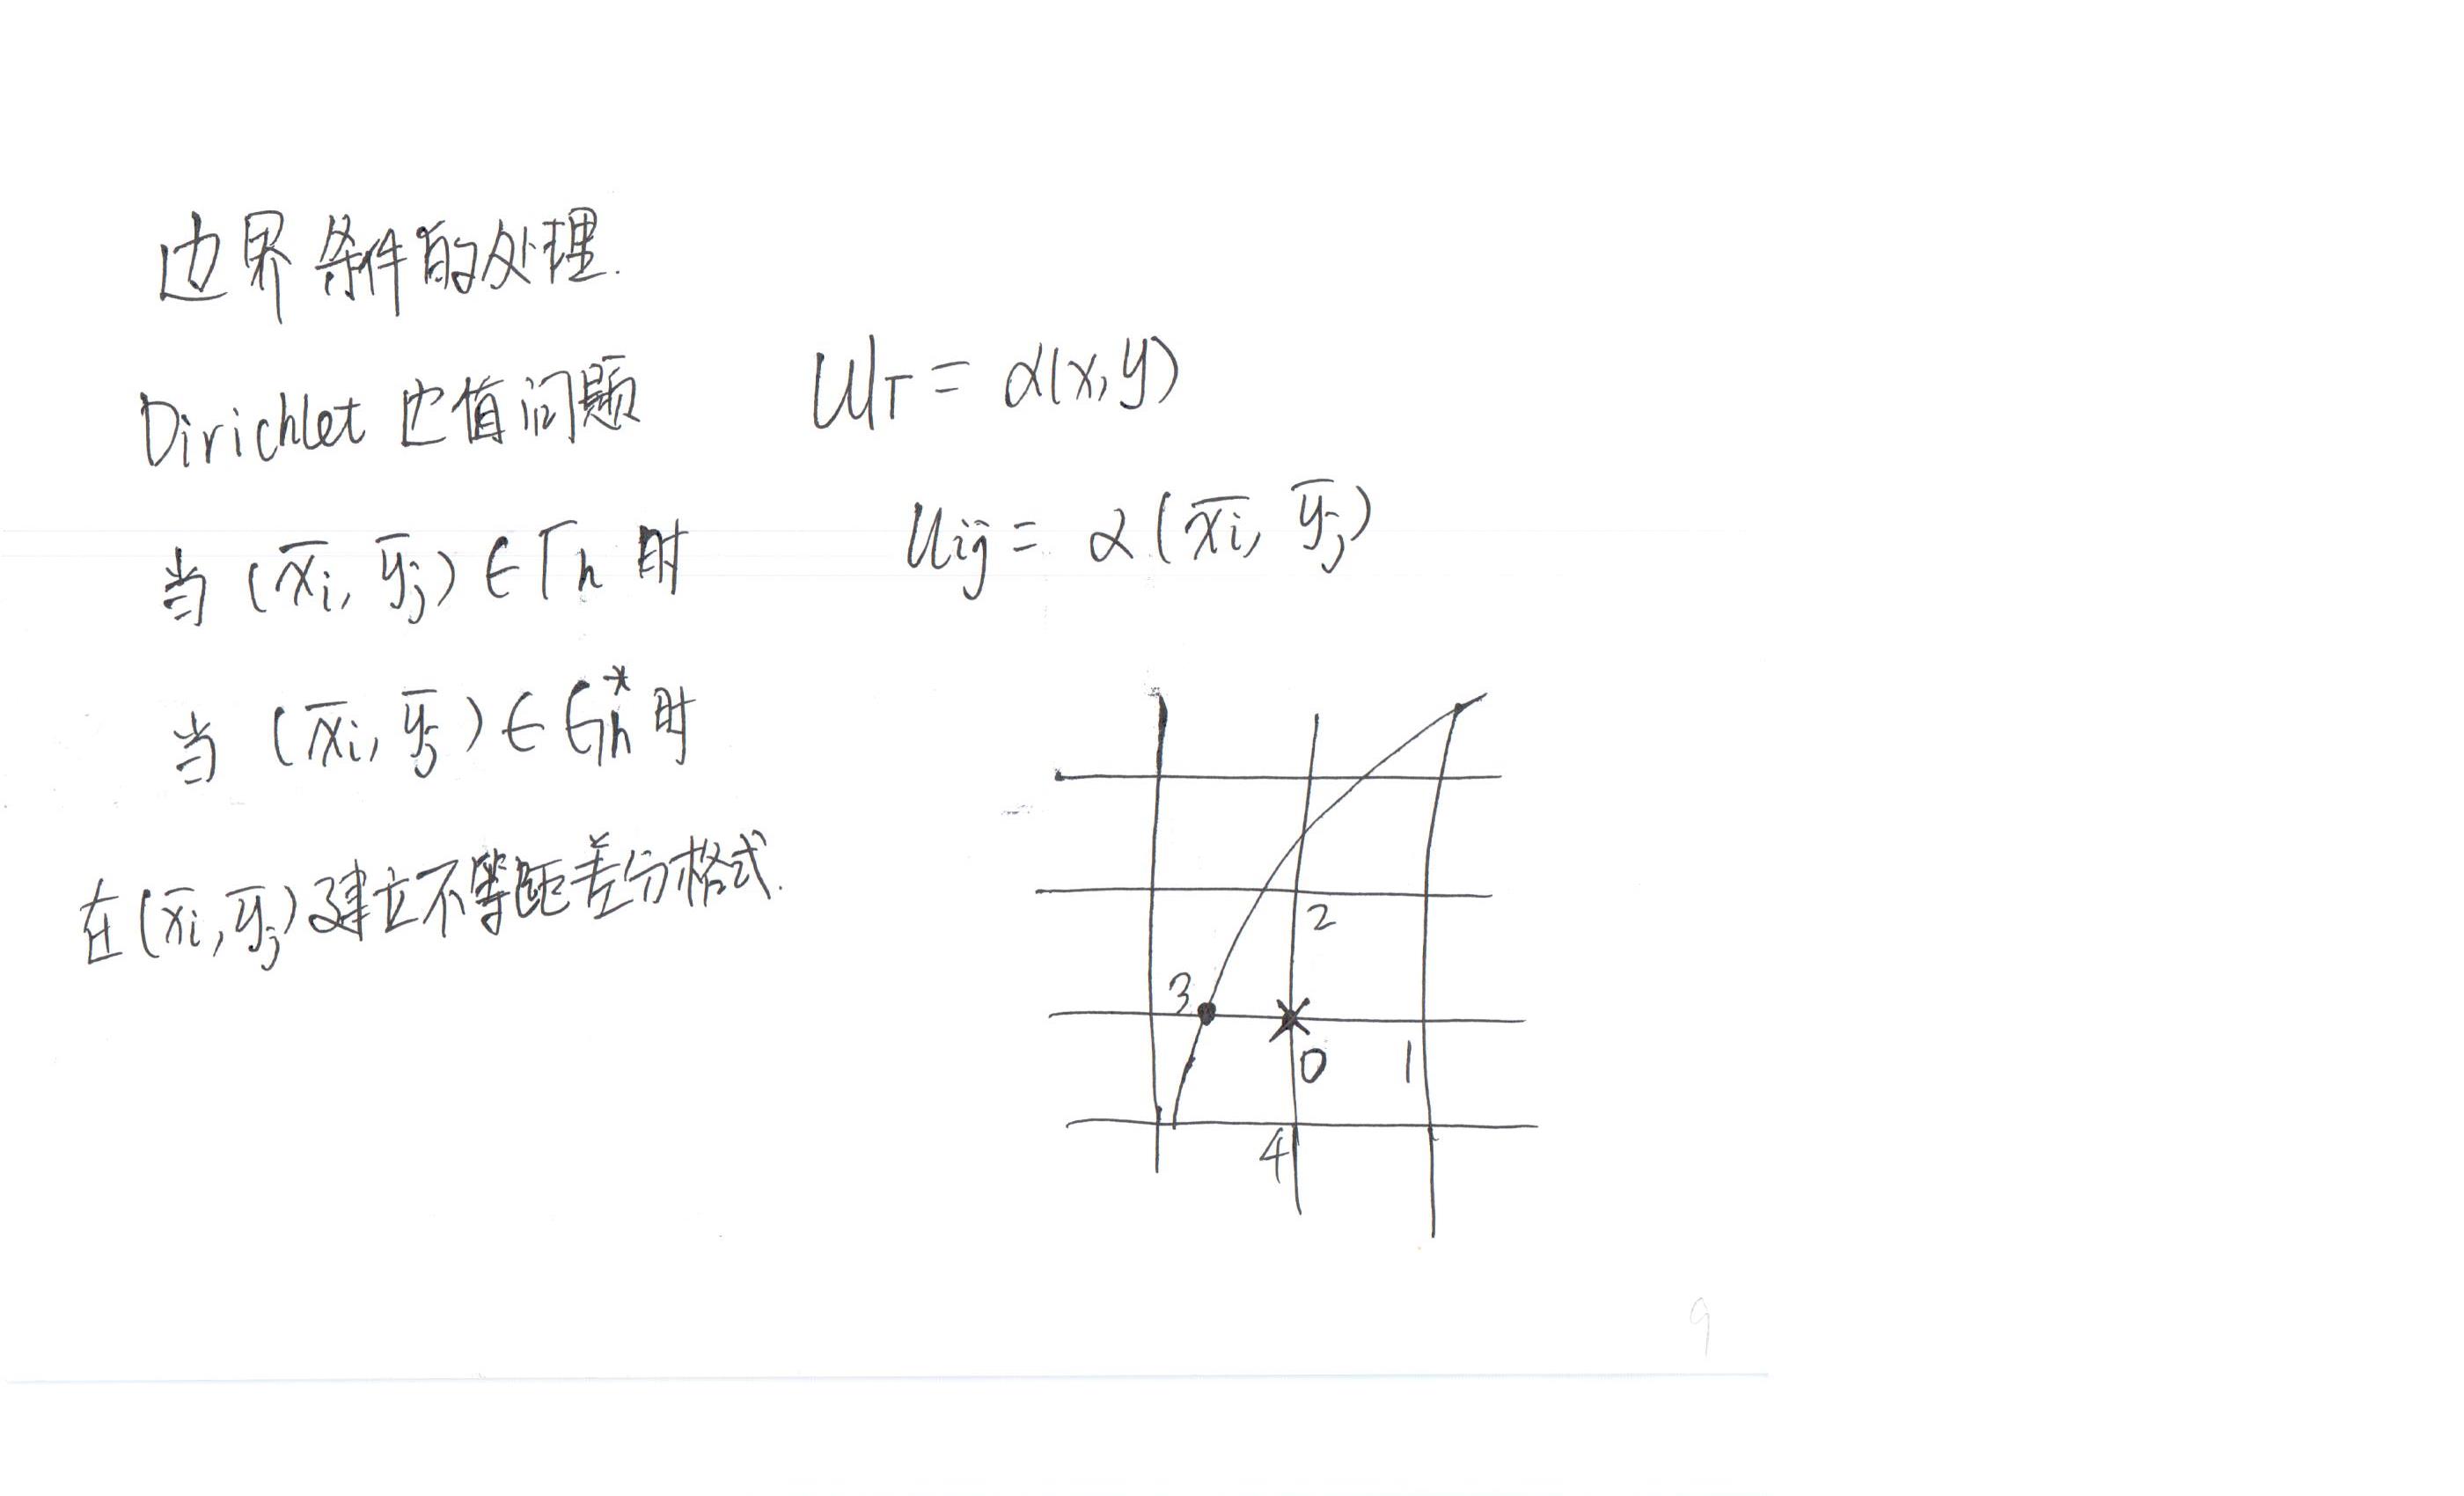 边界条件的处理.
Dirichlet 边值问题 u|_Γ = α(x,y)
当 (x̄i, ȳj) ∈ Γh 时 uij = α(x̄i, ȳj)
当 (x̄i, ȳj) ∈ G*h 时
在(x̄i, ȳj)建立不等距差分格式.
2
3
0
1
4
9